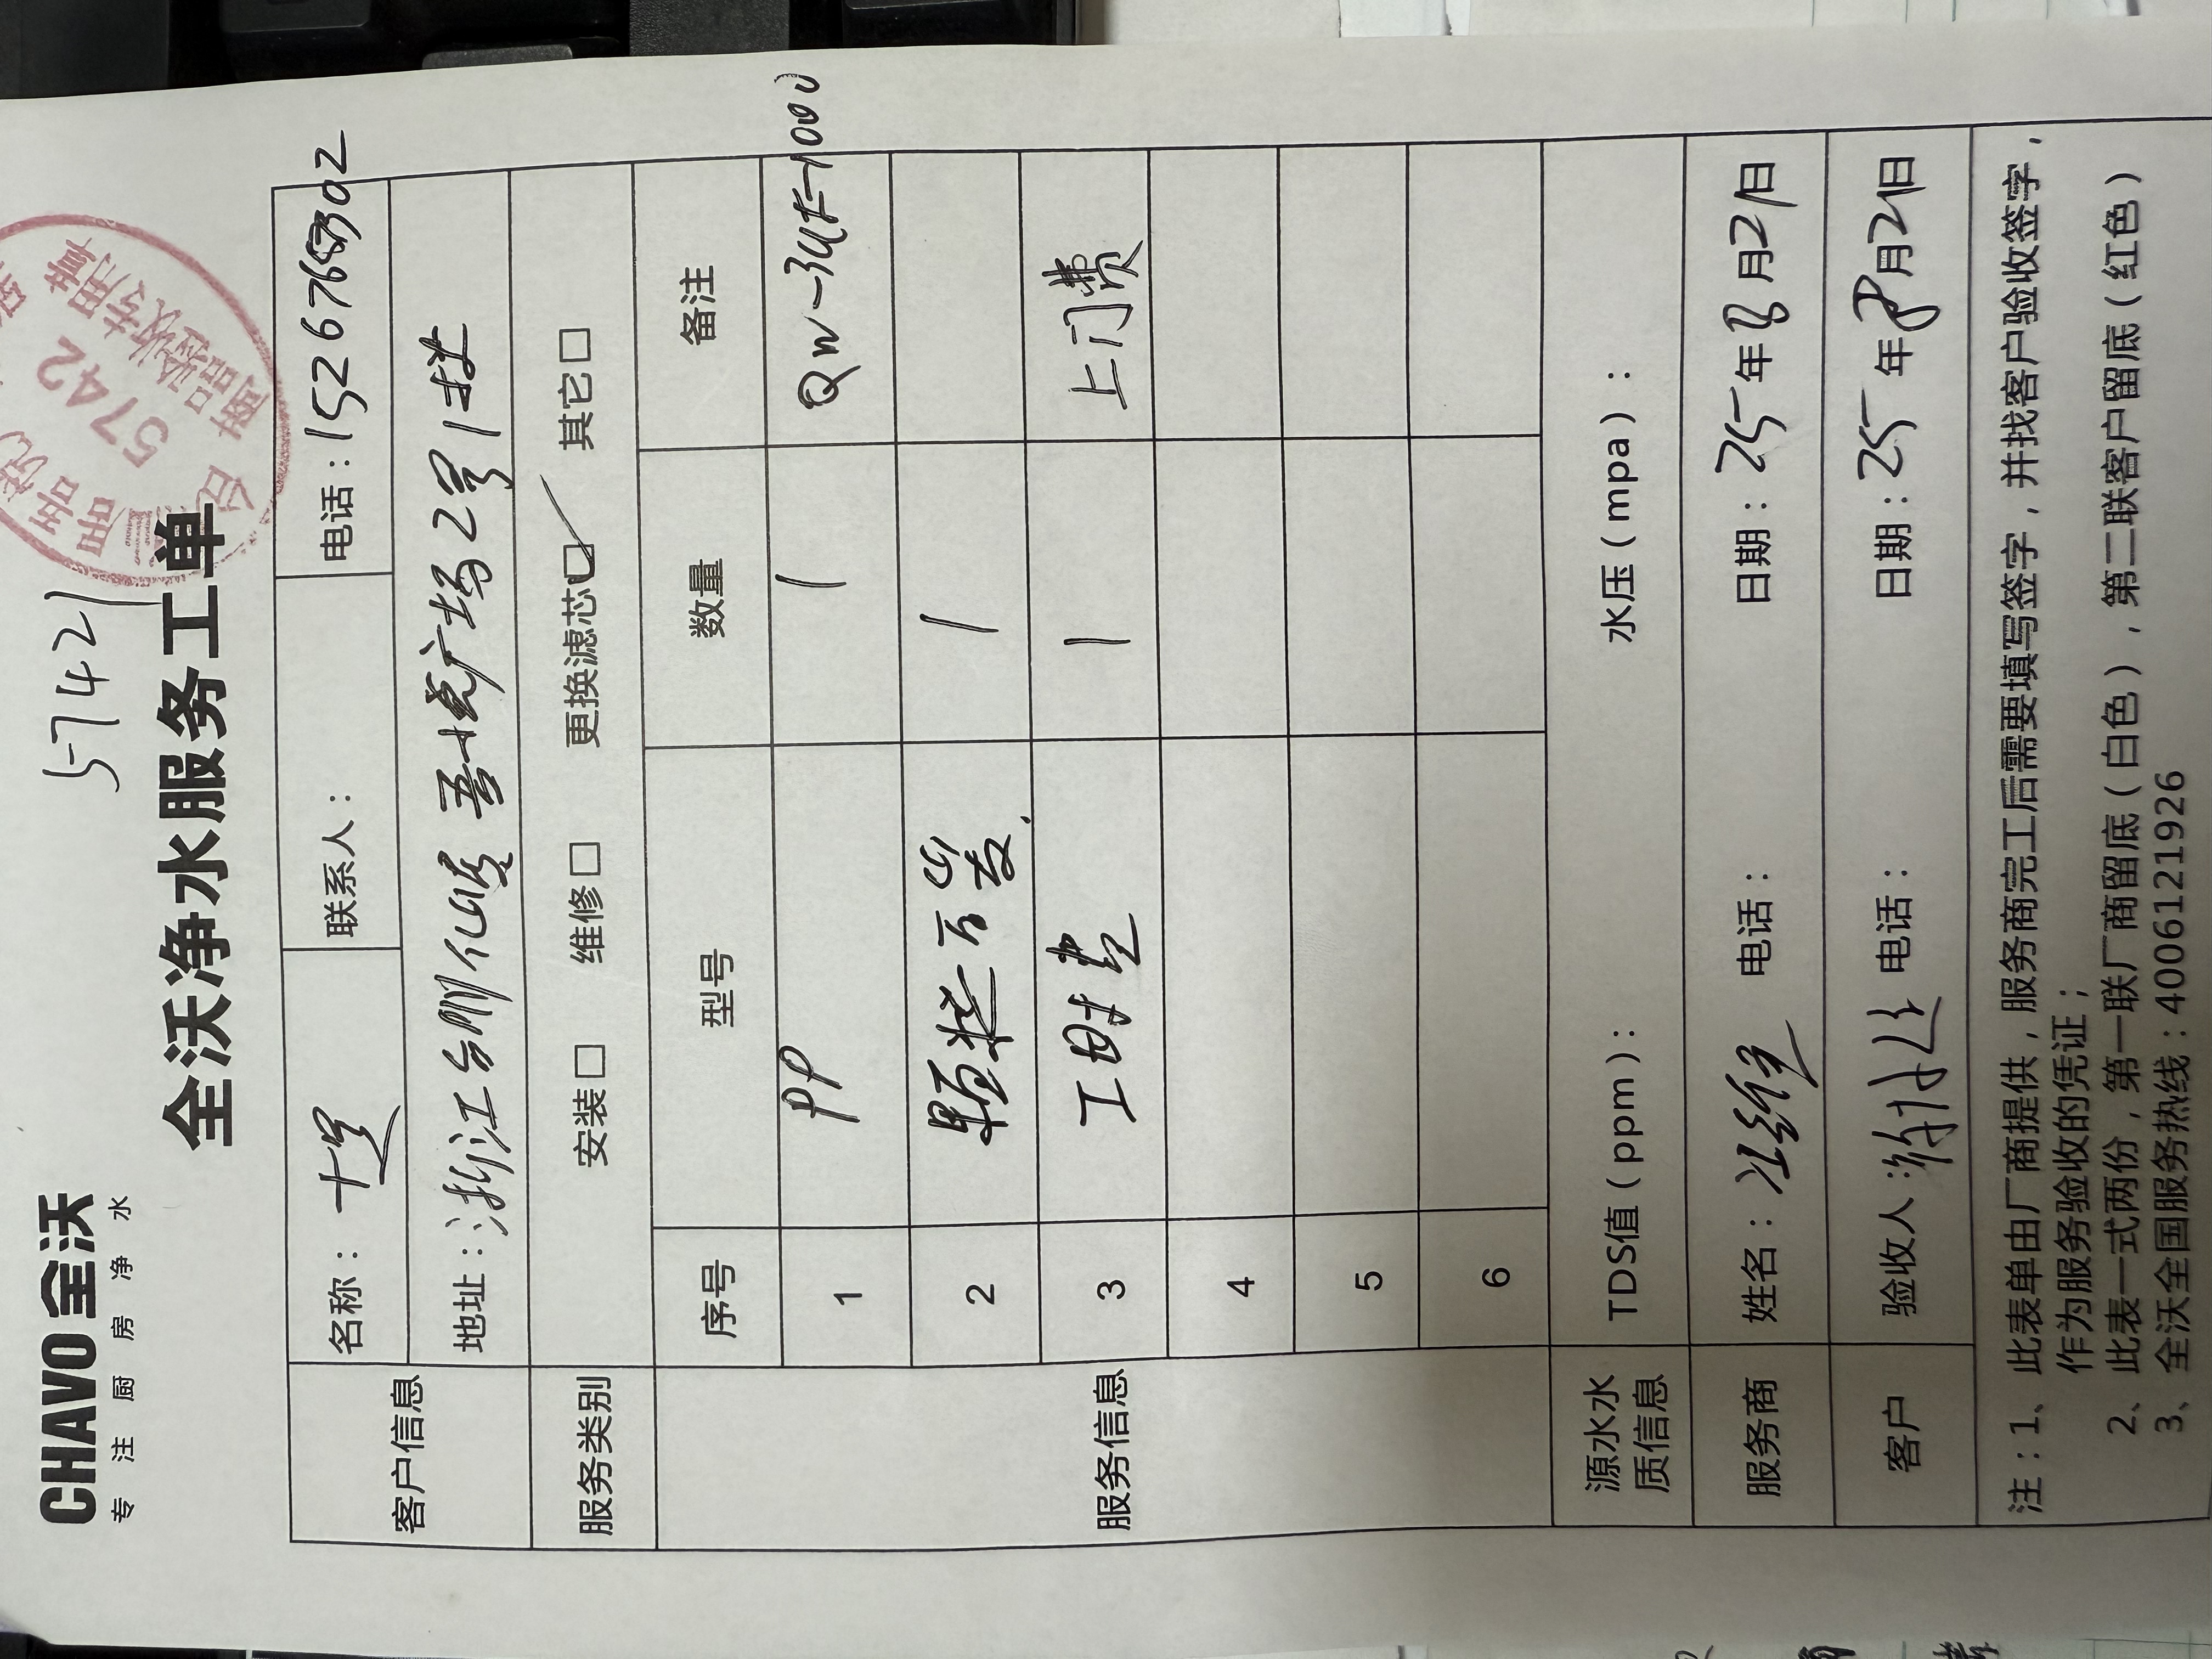 CHAVO 全沃
专注厨房净水
57421
5742
商品验收专用章
全沃净水服务工单
客户信息
名称：
联系人：
电话：
地址：浙江台州仙居 吾悦广场2号1楼
服务类别
安装□ 维修□ 更换滤芯□✓ 其它□
服务信息
序号 型号 数量 备注
1 PP 1 QW-3UF-1000
2 颗粒 1
3 工时费 1 上门费
4
5
6
源水水质信息
TDS值（ppm）： 水压（mpa）：
服务商 姓名： 电话： 日期：25年8月21日
客户 验收人： 电话： 日期：25年8月21日
注：1、此表单由厂商提供，服务商完工后需要填写签字，并找客户验收签字，
作为服务验收的凭证；
2、此表一式两份，第一联厂商留底（白色），第二联客户留底（红色）
3、全沃全国服务热线：4006121926